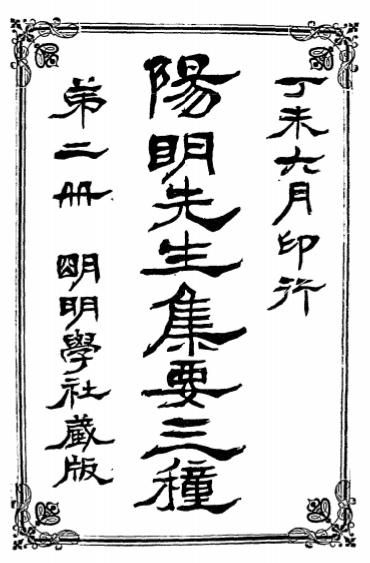 丁未六月印行
陽明先生集要三種
第二册　明明學社藏版